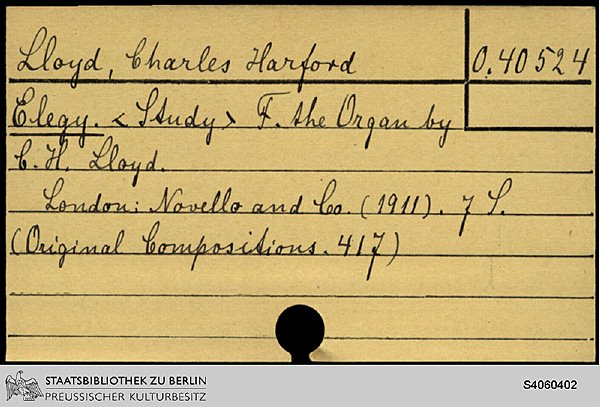 Lloyd, Charles Harford
O.40524
Elegy. < Study > F. the Organ by
C. H. Lloyd.
London: Novello and Co. (1911). 7 S.
(Original Compositions. 417)
STAATSBIBLIOTHEK ZU BERLIN
PREUSSISCHER KULTURBESITZ
S4060402